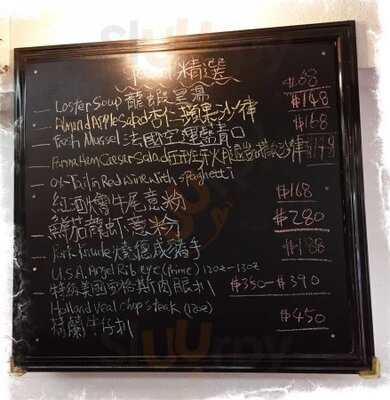 精選
Loster Soup 龍蝦皇湯 $68
Almond Apple Salad 杏仁蘋果沙律 $148
Fresh Mussel 法國空運藍青口 $168
Parma Ham Caesar Salad $148
Ox-Tail in Red Wine with spaghetti
紅酒燴牛尾意粉 $168
鮮茄龍蝦意粉 $280
Pork Knuckle 燒德國咸豬手 $188
U.S.A. Angel Rib eye (prime) 12oz-13oz
特級美國安格斯肉眼扒 $350-$390
Holland veal chop steak (12oz)
荷蘭牛仔扒 $450